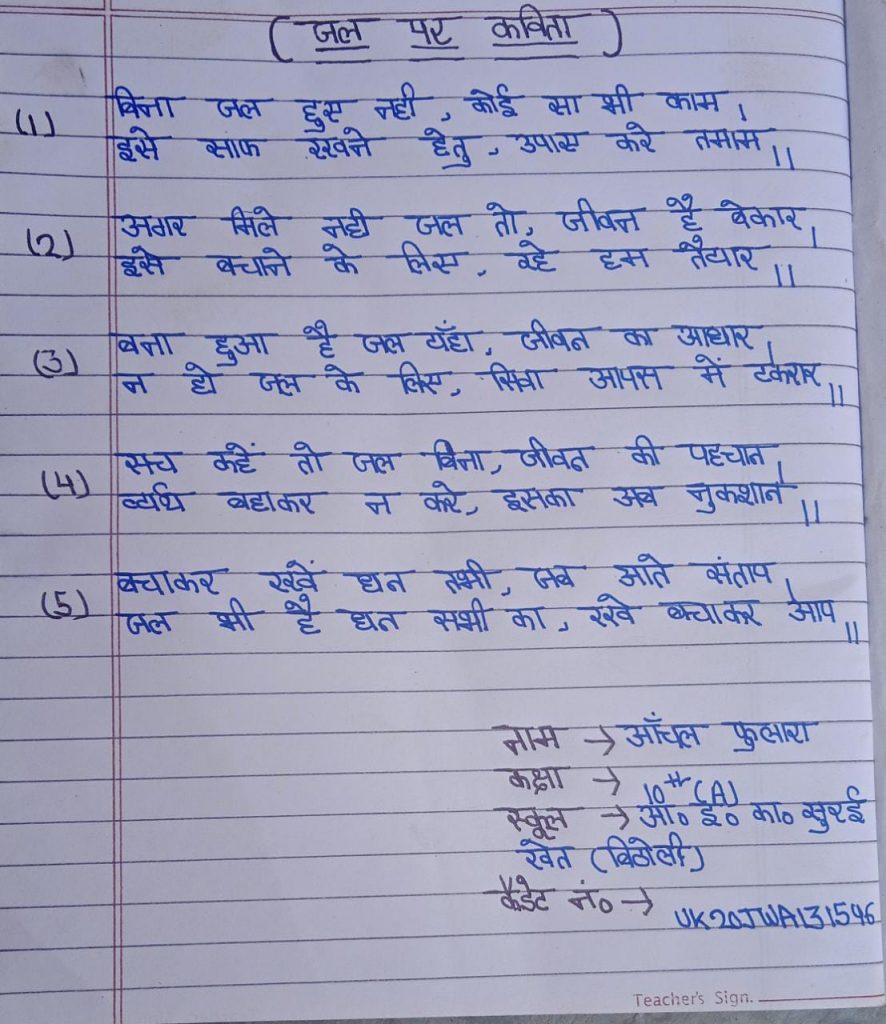 ( जल पर कविता )
(1) बिना जल हुए नही, कोई सा भी काम,
इसे साफ रखने हेतु, उपाए करे तमाम ||
(2) अगर मिले नही जल तो, जीवन है बेकार,
इसे बचाने के लिए, रहे हम तैयार ||
(3) बना हुआ है जल यँहा, जीवन का आधार,
न हो जल के लिए, मिवा आपस में टकरार ||
(4) सच कहें तो जल बिना, जीवन की पहचान,
व्यर्थ बहाकर न करे, इसका अब नुकशान ||
(5) बचाकर रखें धन तभी, जब आते संताप,
जल भी है धन सभी का, रखे बचाकर आप ||
नाम → आँचल फुलारा
कक्षा → 10th (A)
स्कूल → आ० इ० का० सुरई
खेत (बिठोली)
कैडेट नं० → UK20JWA131546
Teacher's Sign.